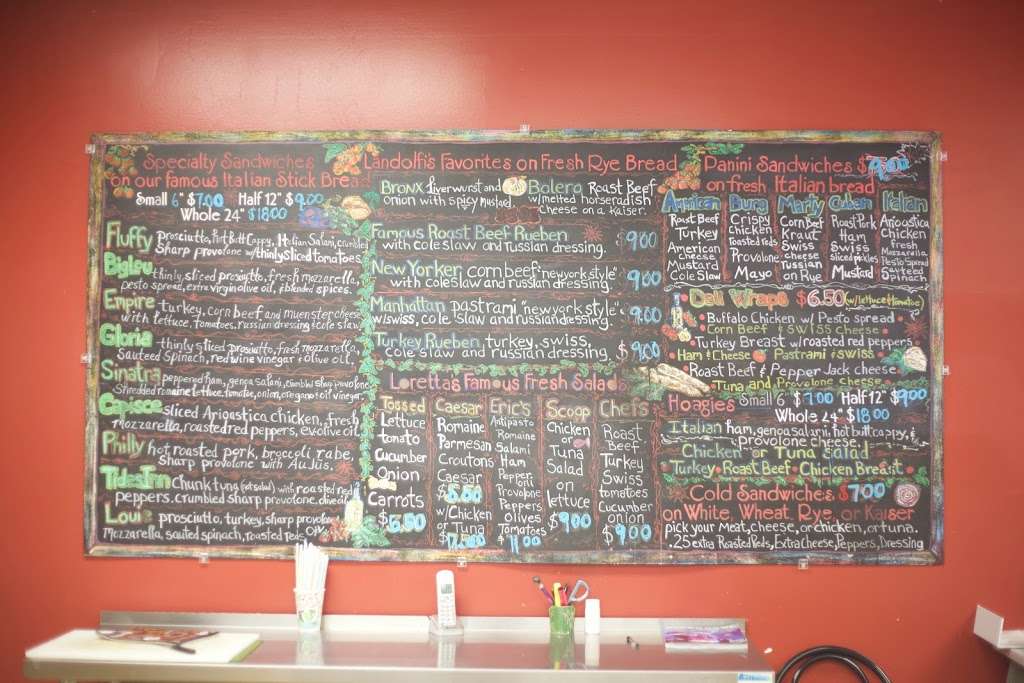 Specialty Sandwiches
on our famous Italian Stick Bread
Small 6" $7.00 Half 12" $9.00
Whole 24" $18.00
Fluffy prosciutto, Hot Butt Cappy, Italian Salami, crumbled
sharp provolone w/thinly sliced tomatoes.
BigLou thinly sliced prosciutto, fresh mozzarella,
pesto spread, extra virgin olive oil, & blended spices.
Empire turkey, corn beef and muenster cheese
with lettuce, tomatoes, russian dressing & cole slaw
Gloria thinly sliced prosciutto, fresh mozzarella,
Sauteed Spinach, red wine vinegar & olive oil
Sinatra peppered ham, genoa salami, crumbled sharp provolone
Shredded romaine lettuce, tomato, onion, oregano & oil vinegar.
Capisce sliced Ariogastica chicken, fresh
mozzarella, roasted red peppers, ev. olive oil
Philly hot roasted pork, broccoli rabe,
sharp provolone with Au Jus.
Tides Inn Chunk tuna with roasted red
peppers, crumbled sharp provolone, olive oil
Louie prosciutto, turkey, sharp provolone
Mozzarella, sauteed spinach, roasted reds,
Landolfi's Favorites on Fresh Rye Bread
Bronx liverwurst and
onion with spicy mustard.
Bolera Roast Beef
w/melted horseradish
cheese on a kaiser.
Famous Roast Beef Rueben
with coleslaw and russian dressing. $9.00
New Yorker, corn beef "new york style"
with coleslaw and russian dressing. $9.00
Manhattan pastrami "new york style"
w/swiss, cole slaw and russian dressing. $9.00
Turkey Rueben, turkey, swiss,
cole slaw and russian dressing. $9.00
Loretta's Famous Fresh Salads
Tossed
Lettuce
tomato
Cucumber
Onion
Carrots
$6.50
Caesar
Romaine
Parmesan
Croutons
Caesar
w/Chicken
or Tuna
Eric's
Antipasto
Romaine
Salami
Ham
Pepper.
oni
Provolone
Peppers
Olives
Tomatoes
Scoop
Chicken
or
Tuna
Salad
on
lettuce
$9.00
Chef's
Roast
Beef
Turkey
Swiss
tomatoes
Cucumber
onion
$9.00
Panini Sandwiches $9.00
on fresh Italian bread
American
Roast Beef
Turkey
American
cheese
Mustard
Cole Slaw
Burg
Crispy
Chicken
Roasted reds
Provolone
Mayo
Marty
Corn Beef
Kraut
Swiss
cheese
Russian
on Rye
Cuban
Roast Pork
Ham
Swiss
sliced pickles
Mustard
Italian
Ariogastica
Chicken
fresh
Mozzarella
Pesto Spread
Sauteed
Spinach
Deli Wraps $6.50 (w/lettuce & tomatoe)
Buffalo Chicken w/ Pesto spread
Corn Beef & Swiss cheese
Turkey Breast w/roasted red peppers
Ham & Cheese Pastrami & swiss
Roast Beef & Pepper Jack cheese
Tuna and Provolone cheese
Hoagies Small 6" $7.00 Half 12" $9.00
Whole 24" $18.00
Italian ham, genoa salami, hot butt cappy, &
provolone cheese.
Chicken or Tuna Salad
Turkey Roast Beef Chicken Breast
Cold Sandwiches $7.00
on White, Wheat, Rye, or Kaiser
pick your meat, cheese, or chicken, or tuna.
.25 extra Roasted Reds, Extra Cheese, Peppers, Dressing